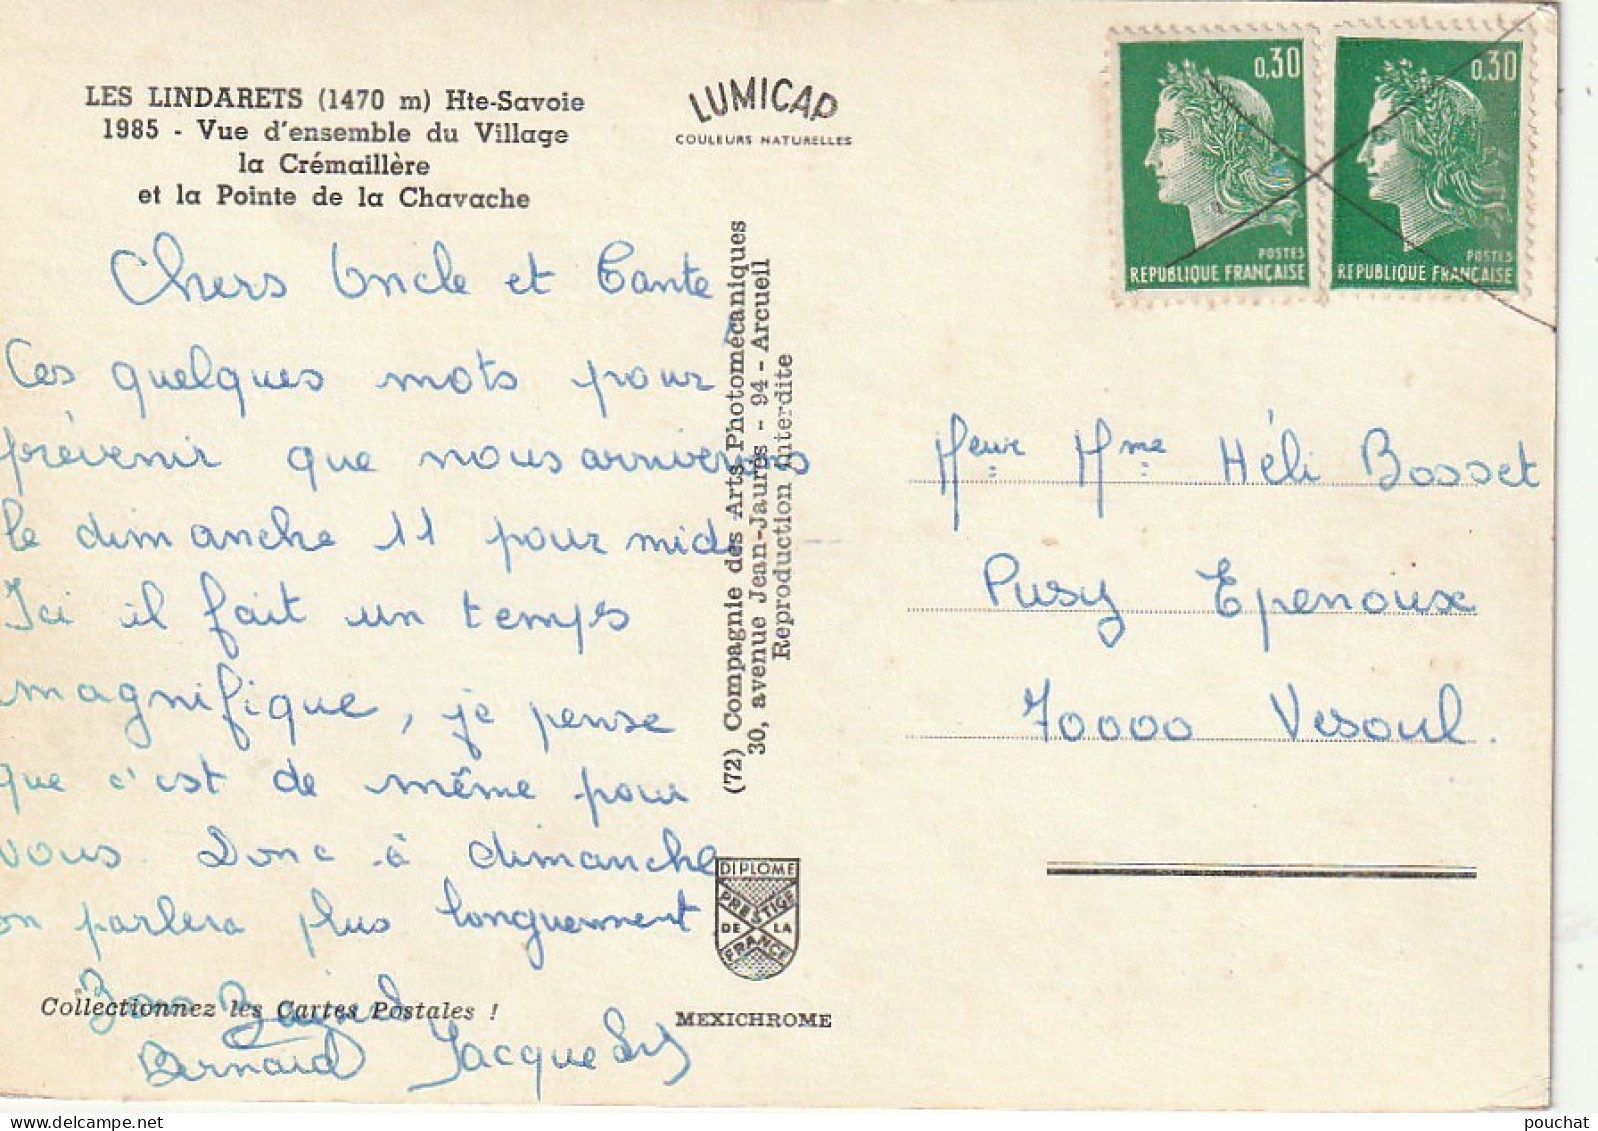 LES LINDARETS (1470 m) Hte-Savoie
1985 - Vue d'ensemble du Village
la Crémaillère
et la Pointe de la Chavache
LUMICAP
COULEURS NATURELLES
0,30
POSTES
REPUBLIQUE FRANÇAISE
0,30
POSTES
REPUBLIQUE FRANÇAISE
Chers Oncle et Tante
Ces quelques mots pour
prévenir que nous arriverons
le dimanche 11 pour midi
Ici il fait un temps
magnifique, je pense
que c'est de même pour
vous. Donc à dimanche
on parlera plus longuement
Bons Baisers
Bernard Jacques
(72) Compagnie des Arts Photomécaniques
30, avenue Jean-Jaurès - 94 - Arcueil
Reproduction interdite
Meur Mme Héli Bosset
Pusy Epenoux
70000 Vesoul.
DIPLOME
PRESTIGE
DE LA
FRANCE
Collectionnez les Cartes Postales !
MEXICHROME
www.delcampe.net
pouchat